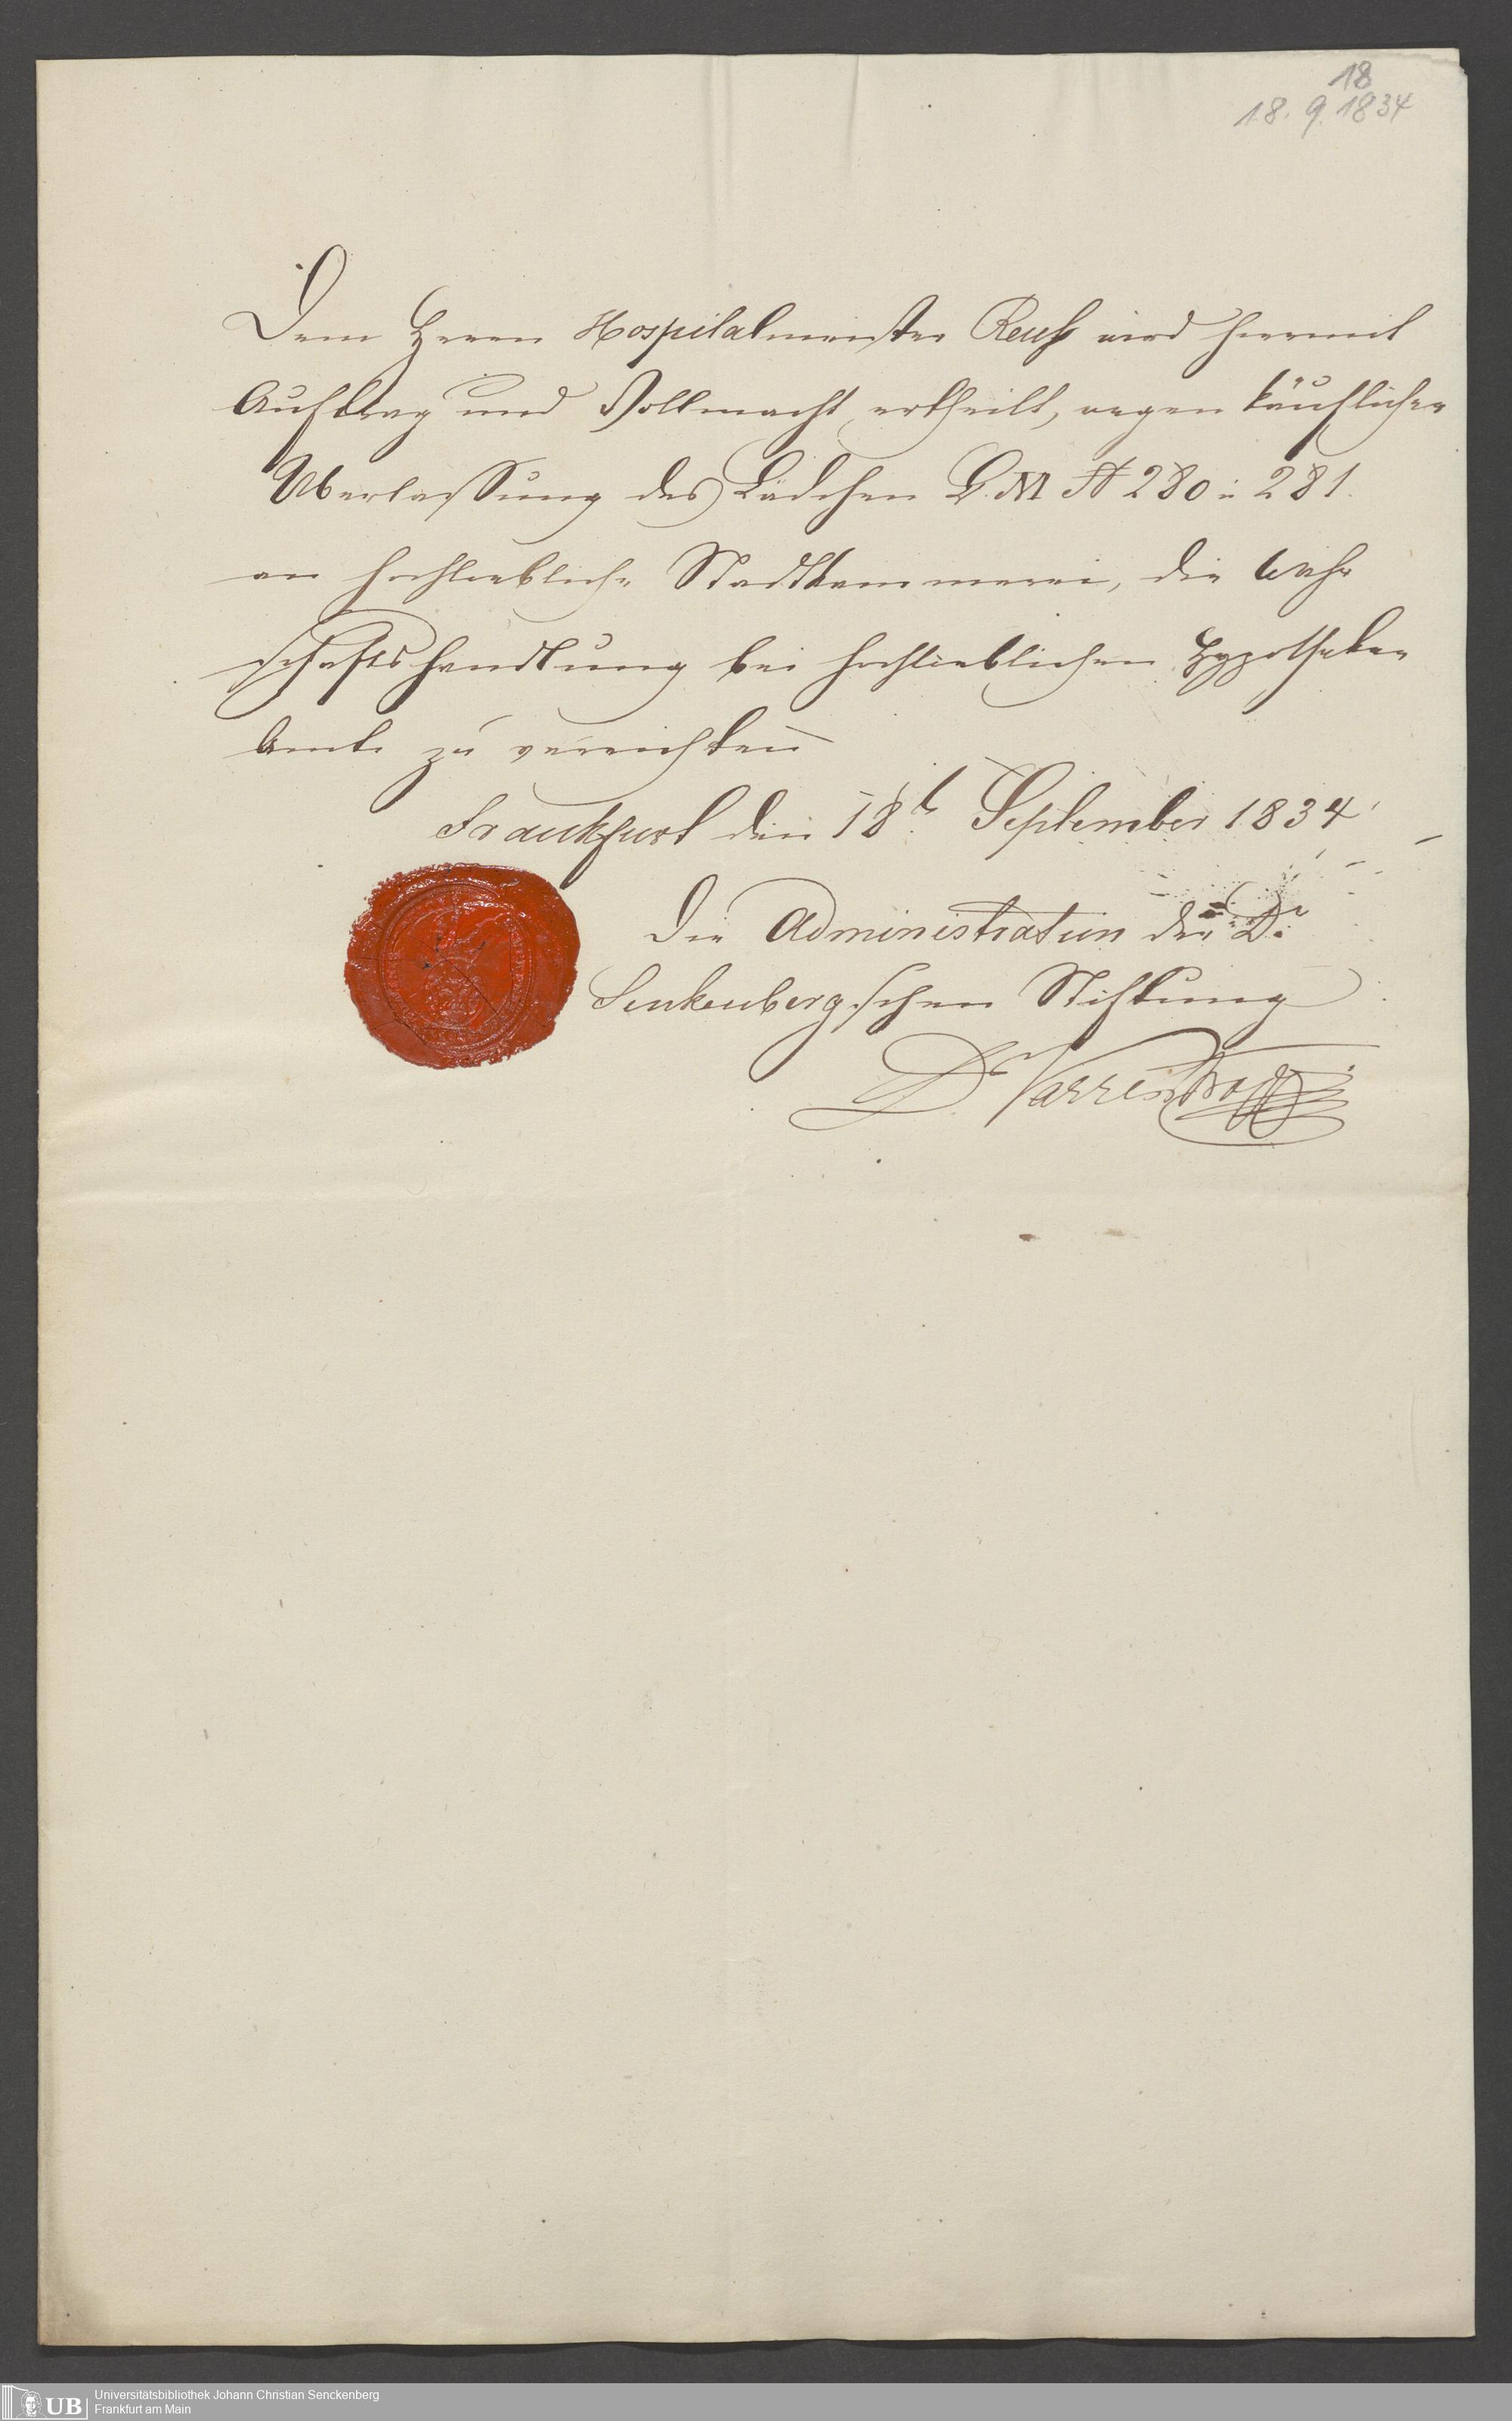 18
18. 9. 1834
Dem Herrn Hospitalmeister Reuß wird hiermit
Auftrag und Vollmacht ertheilt, wegen käuflicher
Überlassung des Lädchen L. M № 280 u 281.
an hochlöbliche Stadtkämmerei, die Wehr
schaftshandlung bei hochlöblichen Hypotheken
Amte zu verrichten
Frankfurt den 18t September 1834
Die Administration der Dr.
Senkenberg.schen Stiftung
Dr Varrentrapp
Universitätsbibliothek Johann Christian Senckenberg
Frankfurt am Main
UB